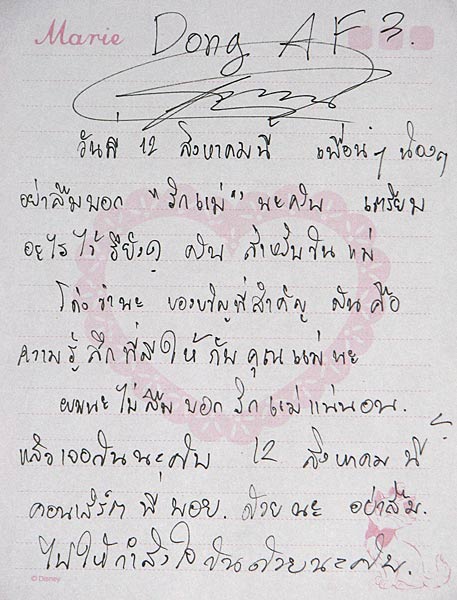 Marie Dong AF3.
วันที่ 12 สิงหาคมนี้ เพื่อนๆ น้องๆ
อย่าลืมบอก "รักแม่" นะครับ เตรียม
อะไรไว้รึยังๆ ครับ สำหรับวันแม่
โด่งว่านะ ของขวัญที่สำคัญ มันคือ
ความรู้สึกที่ดีให้กับคุณแม่นะ
ผมนะไม่ลืมบอกรักแม่แน่นอน.
แล้วเจอกันนะครับ 12 สิงหาคม นี้
คอนเสิร์ต พี่ บอย. ด้วยนะ อย่าลืม.
ไปให้กำลังใจกันด้วยนะครับ.
© Disney